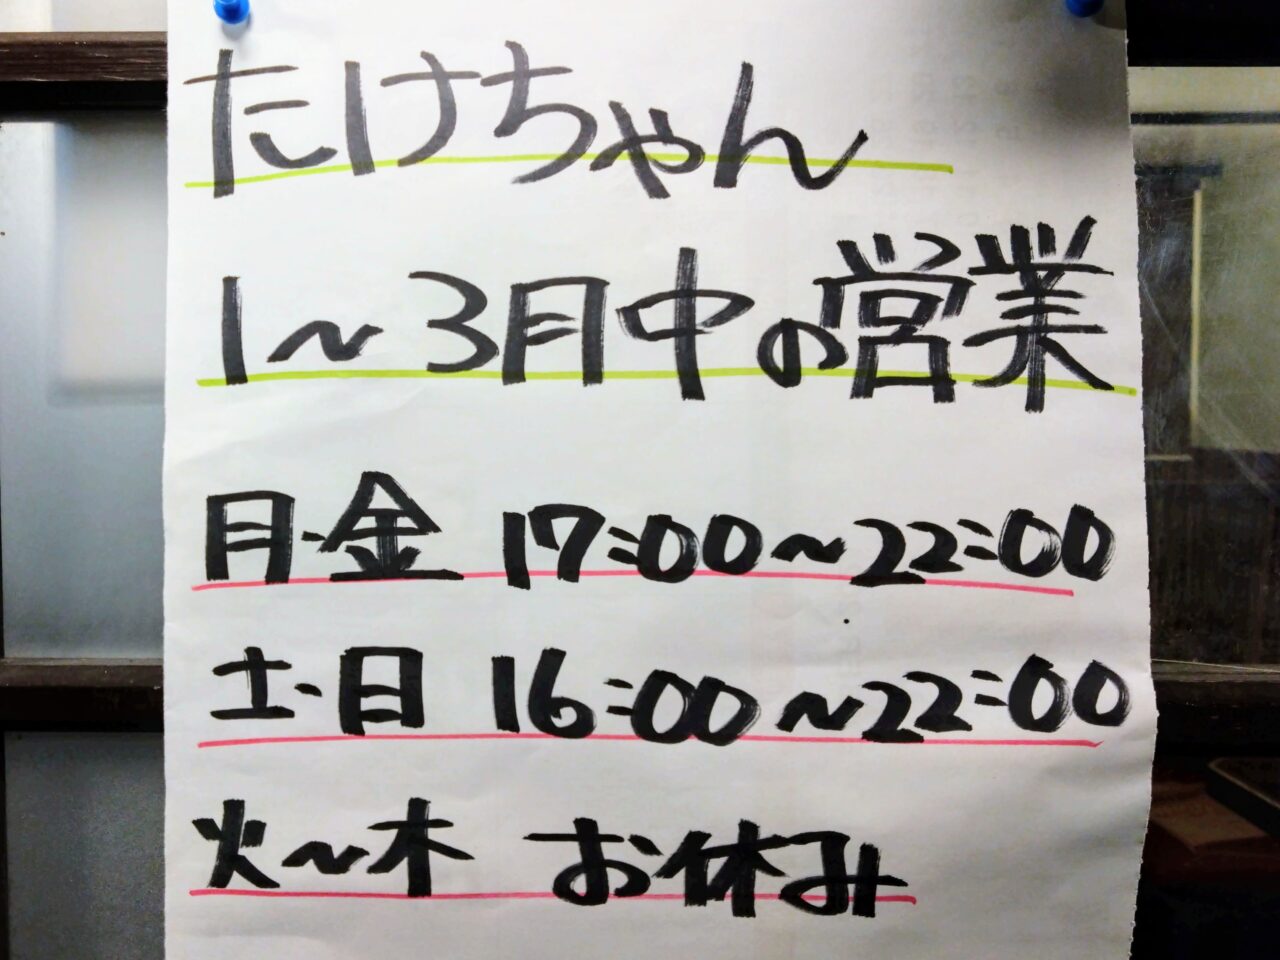 たけちゃん
1〜3月中の営業
月・金 17:00〜22:00
土・日 16:00〜22:00
火〜木 お休み